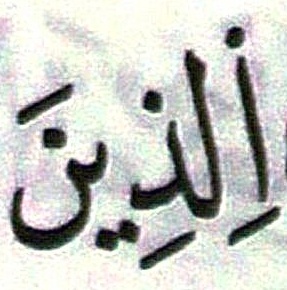 اِ۬لذِينَ